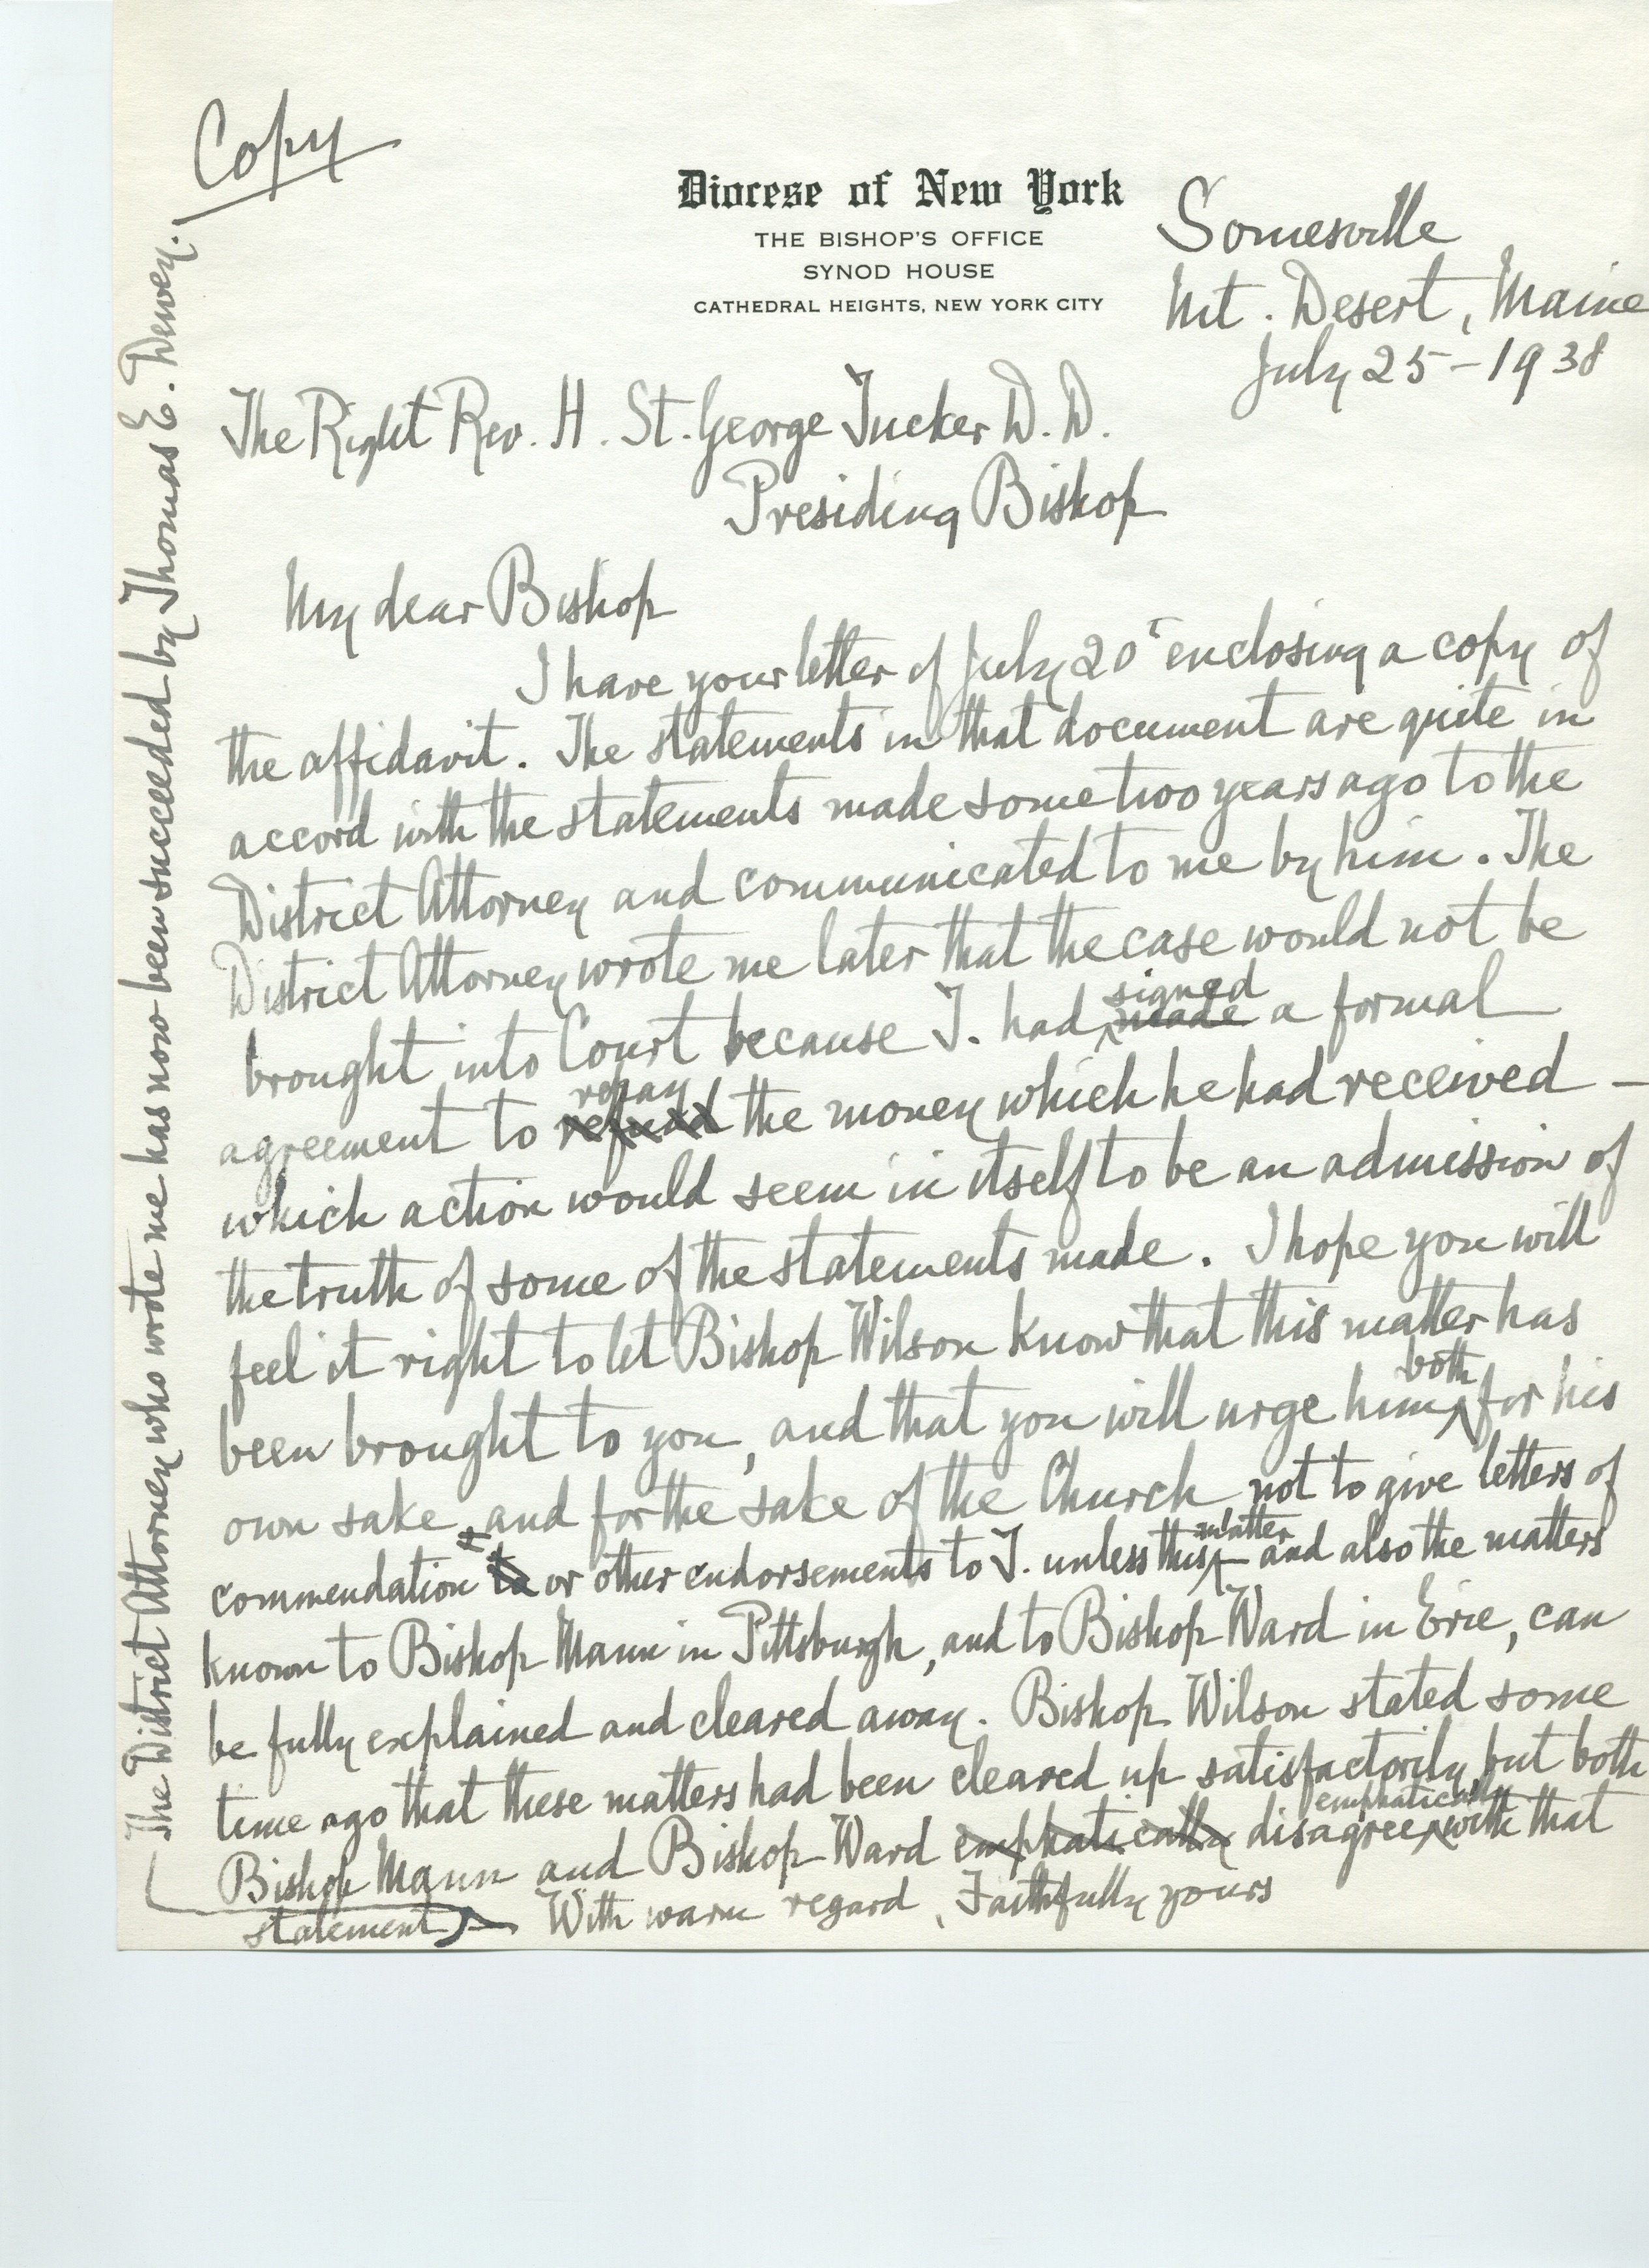 Copy
Diocese of New York
THE BISHOP'S OFFICE
SYNOD HOUSE
CATHEDRAL HEIGHTS, NEW YORK CITY
Somesville
Mt. Desert, Maine
July 25-1938
The Right Rev. H. St. George Tucker D.D.
Presiding Bishop
My dear Bishop
I have your letter of July 20 enclosing a copy of
the affidavit. The statements in that document are quite in
accord with the statements made some two years ago to the
District Attorney and communicated to me by him. The
District Attorney wrote me later that the case would not be
signed
brought into Court because T. had made a formal
repay
agreement to refund the money which he had received -
which action would seem in itself to be an admission of
the truth of some of the statements made. I hope you will
feel it right to let Bishop Wilson know that this matter has
both
been brought to you, and that you will urge him for his
own sake, and for the sake of the Church not to give letters of
matter
commendation to or other endorsements to T. unless this - and also the matters
known to Bishop Mann in Pittsburgh, and to Bishop Ward in Erie, can
be fully explained and cleared away. Bishop Wilson stated some
time ago that these matters had been cleared up satisfactorily, but both
emphatically
Bishop Mann and Bishop Ward emphatically disagree with that
statement. With warm regard, Faithfully yours
The District Attorney who wrote me has now been succeeded by Thomas E. Dewey.